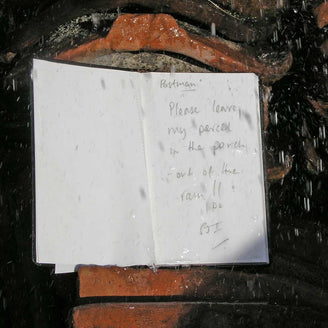 Postman
Please leave
my parcel
in the porch
- out of the
rain !!